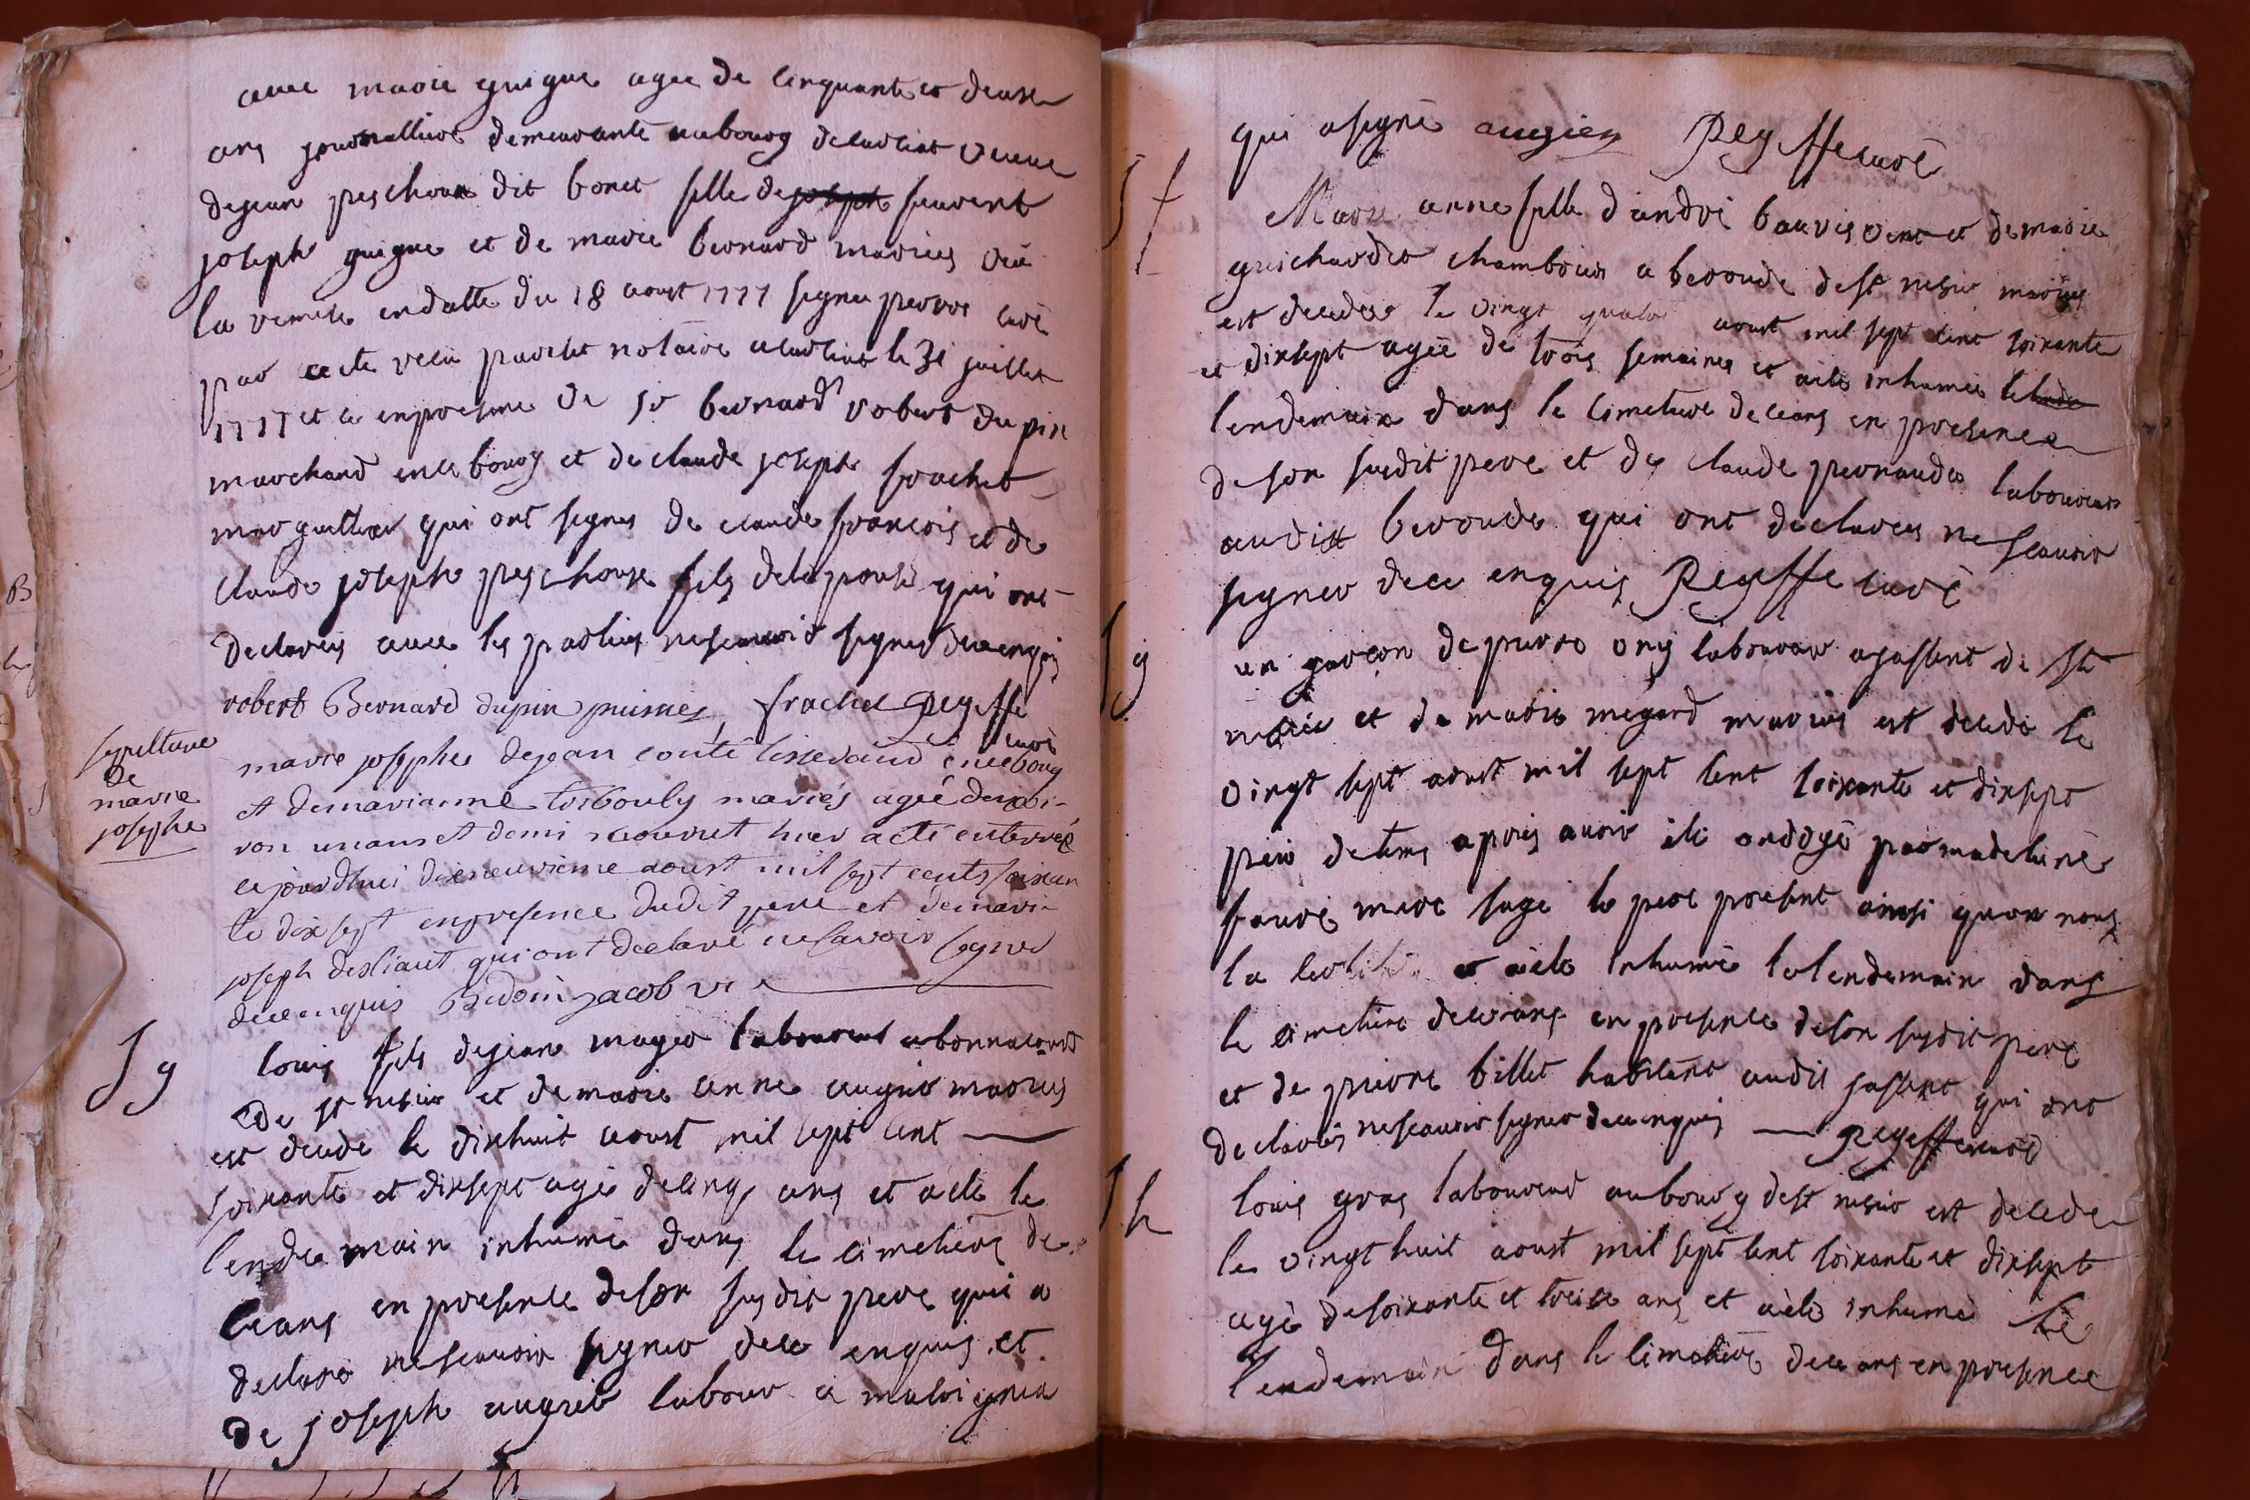 avec marie guigue agee de cinquante et deux
ans journalliere demeurante au bourg de
dejean peschoux dit bonet fille de joseph
joseph guigue et de marie bernard mariés
la remise endatte du 18 aoust 1777 signée curé
par acte notaire le 31 juillet
1777 et ce en presence de sr bernard robert dupin
marchand en ce bourg et de claude joseph frachet
marguillier qui ont signes de claude francois et de
claude joseph peschoux fils delepouse qui ont
declares avec les parties nescavoir signer de ce enquis
robert Bernard dupin frachet Pegeffe
curé
sepulture
de
marie
josephe
marie josephe dejean conté tisserand en ce bourg
et demarianne mariés agée denvi-
ron un ans et demi hier a eté enterrée
cejourdhui dixneuvieme aoust mil sept cents soixan
te dix sept en presence dudit pere et de
joseph qui ont declaré ne savoir signer
de ce enquis jacob vic
Sg
louis fils dejean mager laboureur
de st et de marie anne augier maries
est decede le dixhuit aoust mil sept cent
soixante et dixsept agé de cinq ans et a ete le
lendemain inhumé dans le cimetiere de
ceans en presence de son susdit pere qui a
declaré nescavoir signer de ce enquis et
de joseph augier labour a
qui a signé augier Pegeffe curé
Sf
Marie anne fille d'andré et de marie
chambouer a beroude de st maries
est decedee le vingt quatre aoust mil sept cent soixante
et dixsept agée de trois semaines et a ete inhumée
lendemain dans le cimetiere de ceans en presence
de son susdit pere et de claude pernaudo laboureur
audit beroude qui ont declares ne scavoir
signer de ce enquis Pegeffe curé
Sg
un garcon de pierre laboureur de st
et de marie megard mariés est decedé le
vingt sept aoust mil sept cent soixante et dixsept
peu de tems apres avoir ete ondoyé par madelaine
favre mere sage le pere present ainsi quon nous
la et a ete inhumé le lendemain dans
le cimetiere de ceans en presence de son susdit pere
et de pierre billet habitant audit qui ont
declarés nescavoir signer de ce enquis Pegeffe curé
Sh
louis gras laboureur au bourg de st est decede
le vingt huit aoust mil sept cent soixante et dixsept
agé de soixante et treise ans et a ete inhumé le
lendemain dans le cimetiere de ceans en presence